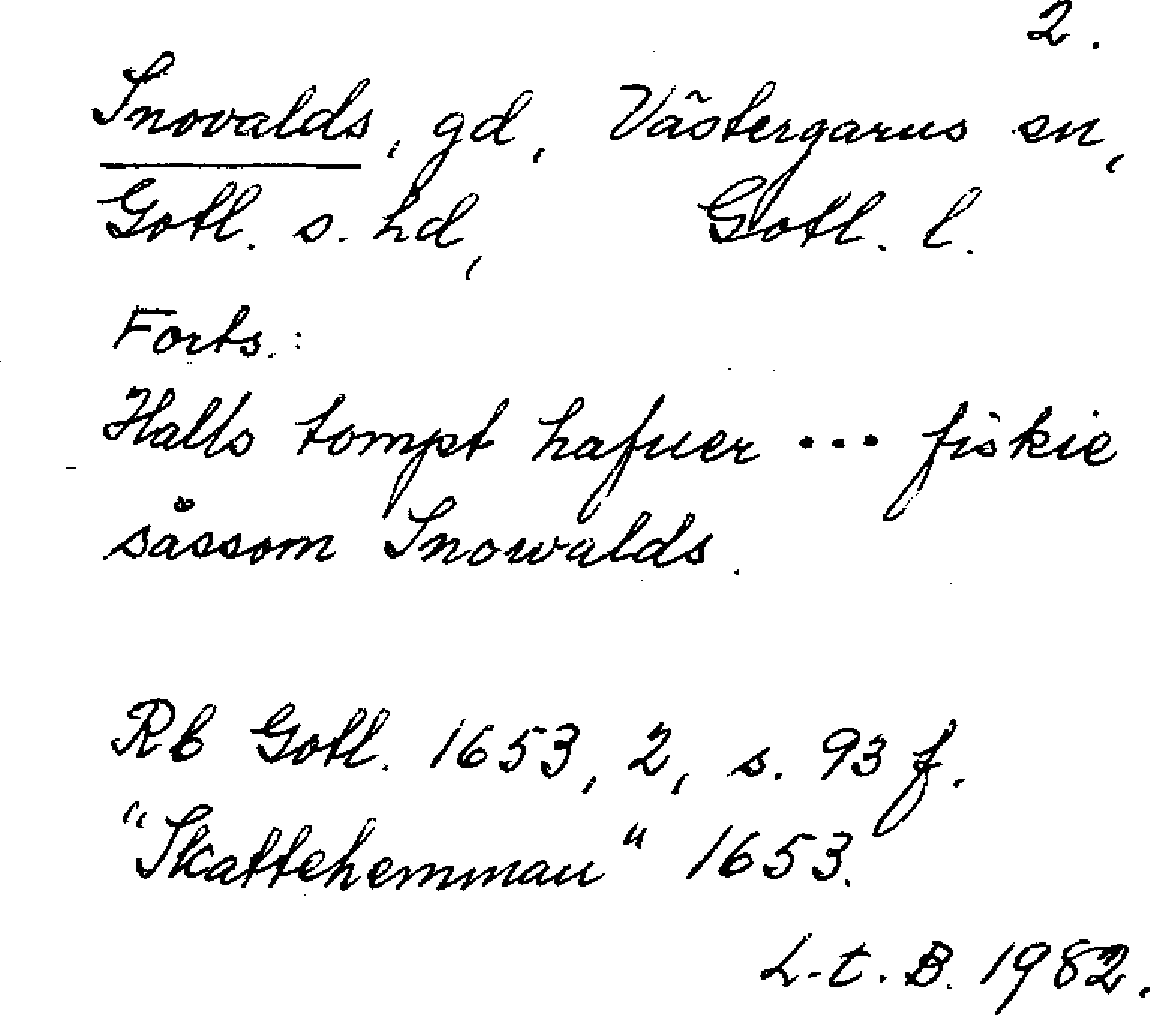 2.
Snovalds, gd, Västergarns sn,
Gotl. s. hd, Gotl. l.
Forts.:
Halls tompt hafuer ... fiskie
såssom Snowalds.
Rb Gotl. 1653, 2, s. 93 f.
"Skattehemman" 1653.
L.t. B. 1982.